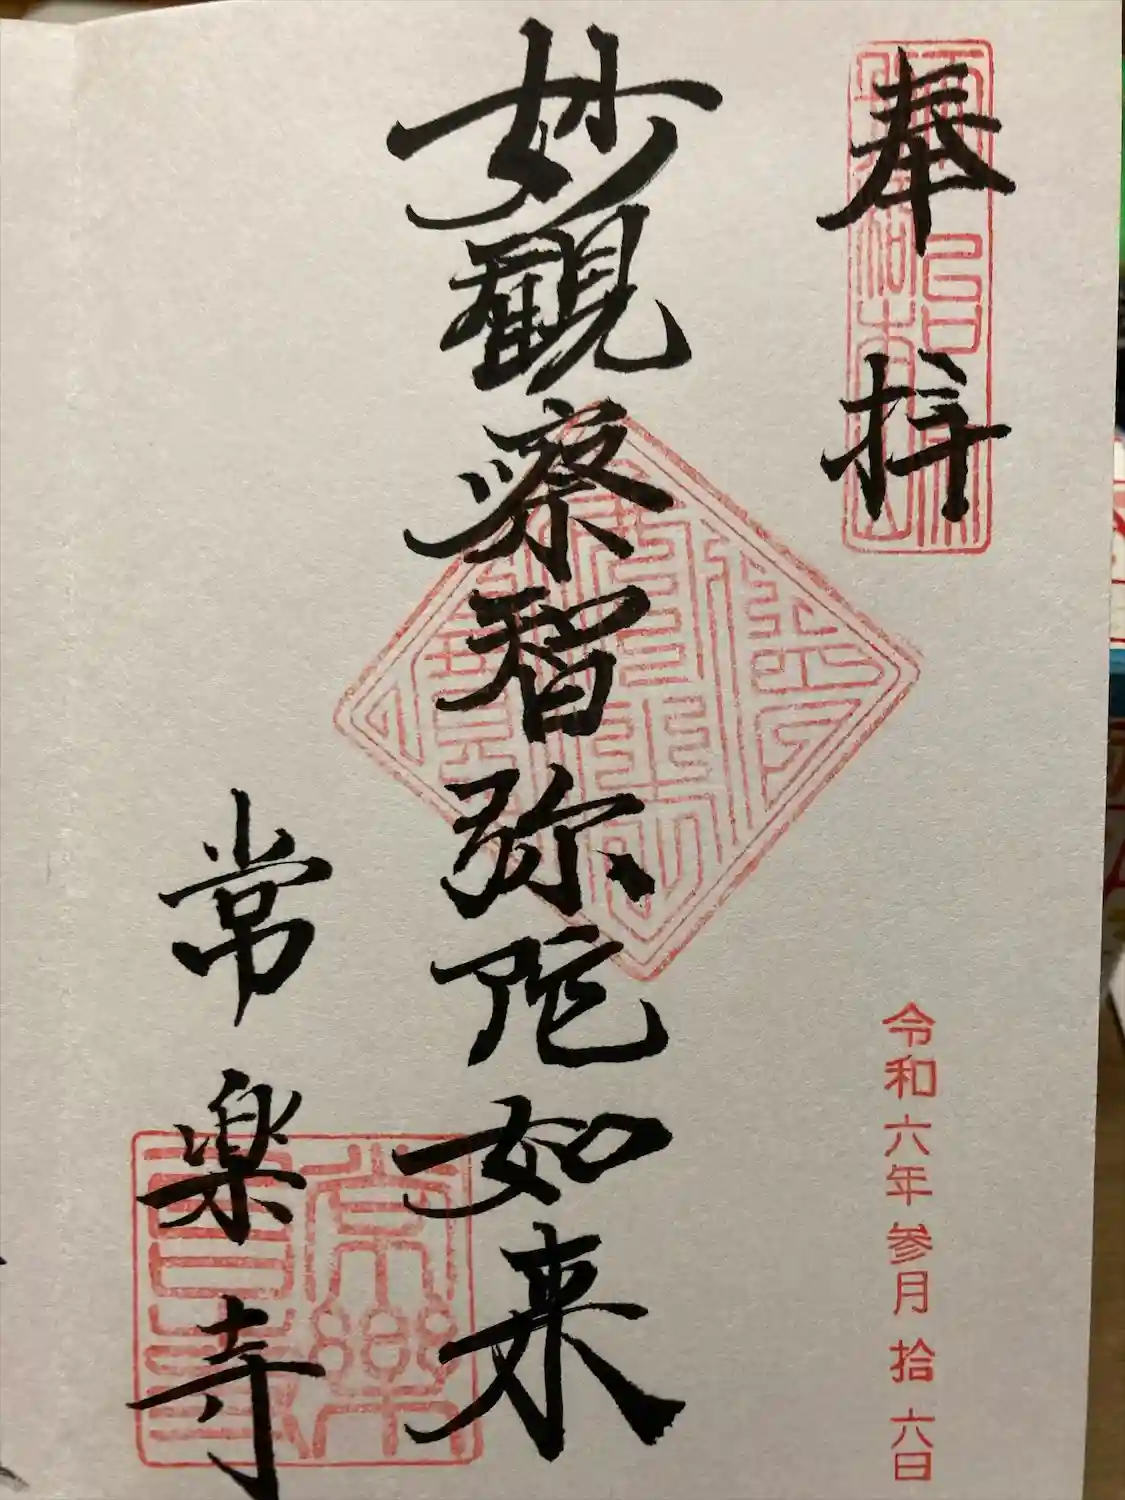 奉拝
令和六年参月拾六日
妙觀察智弥陀如来
常楽寺